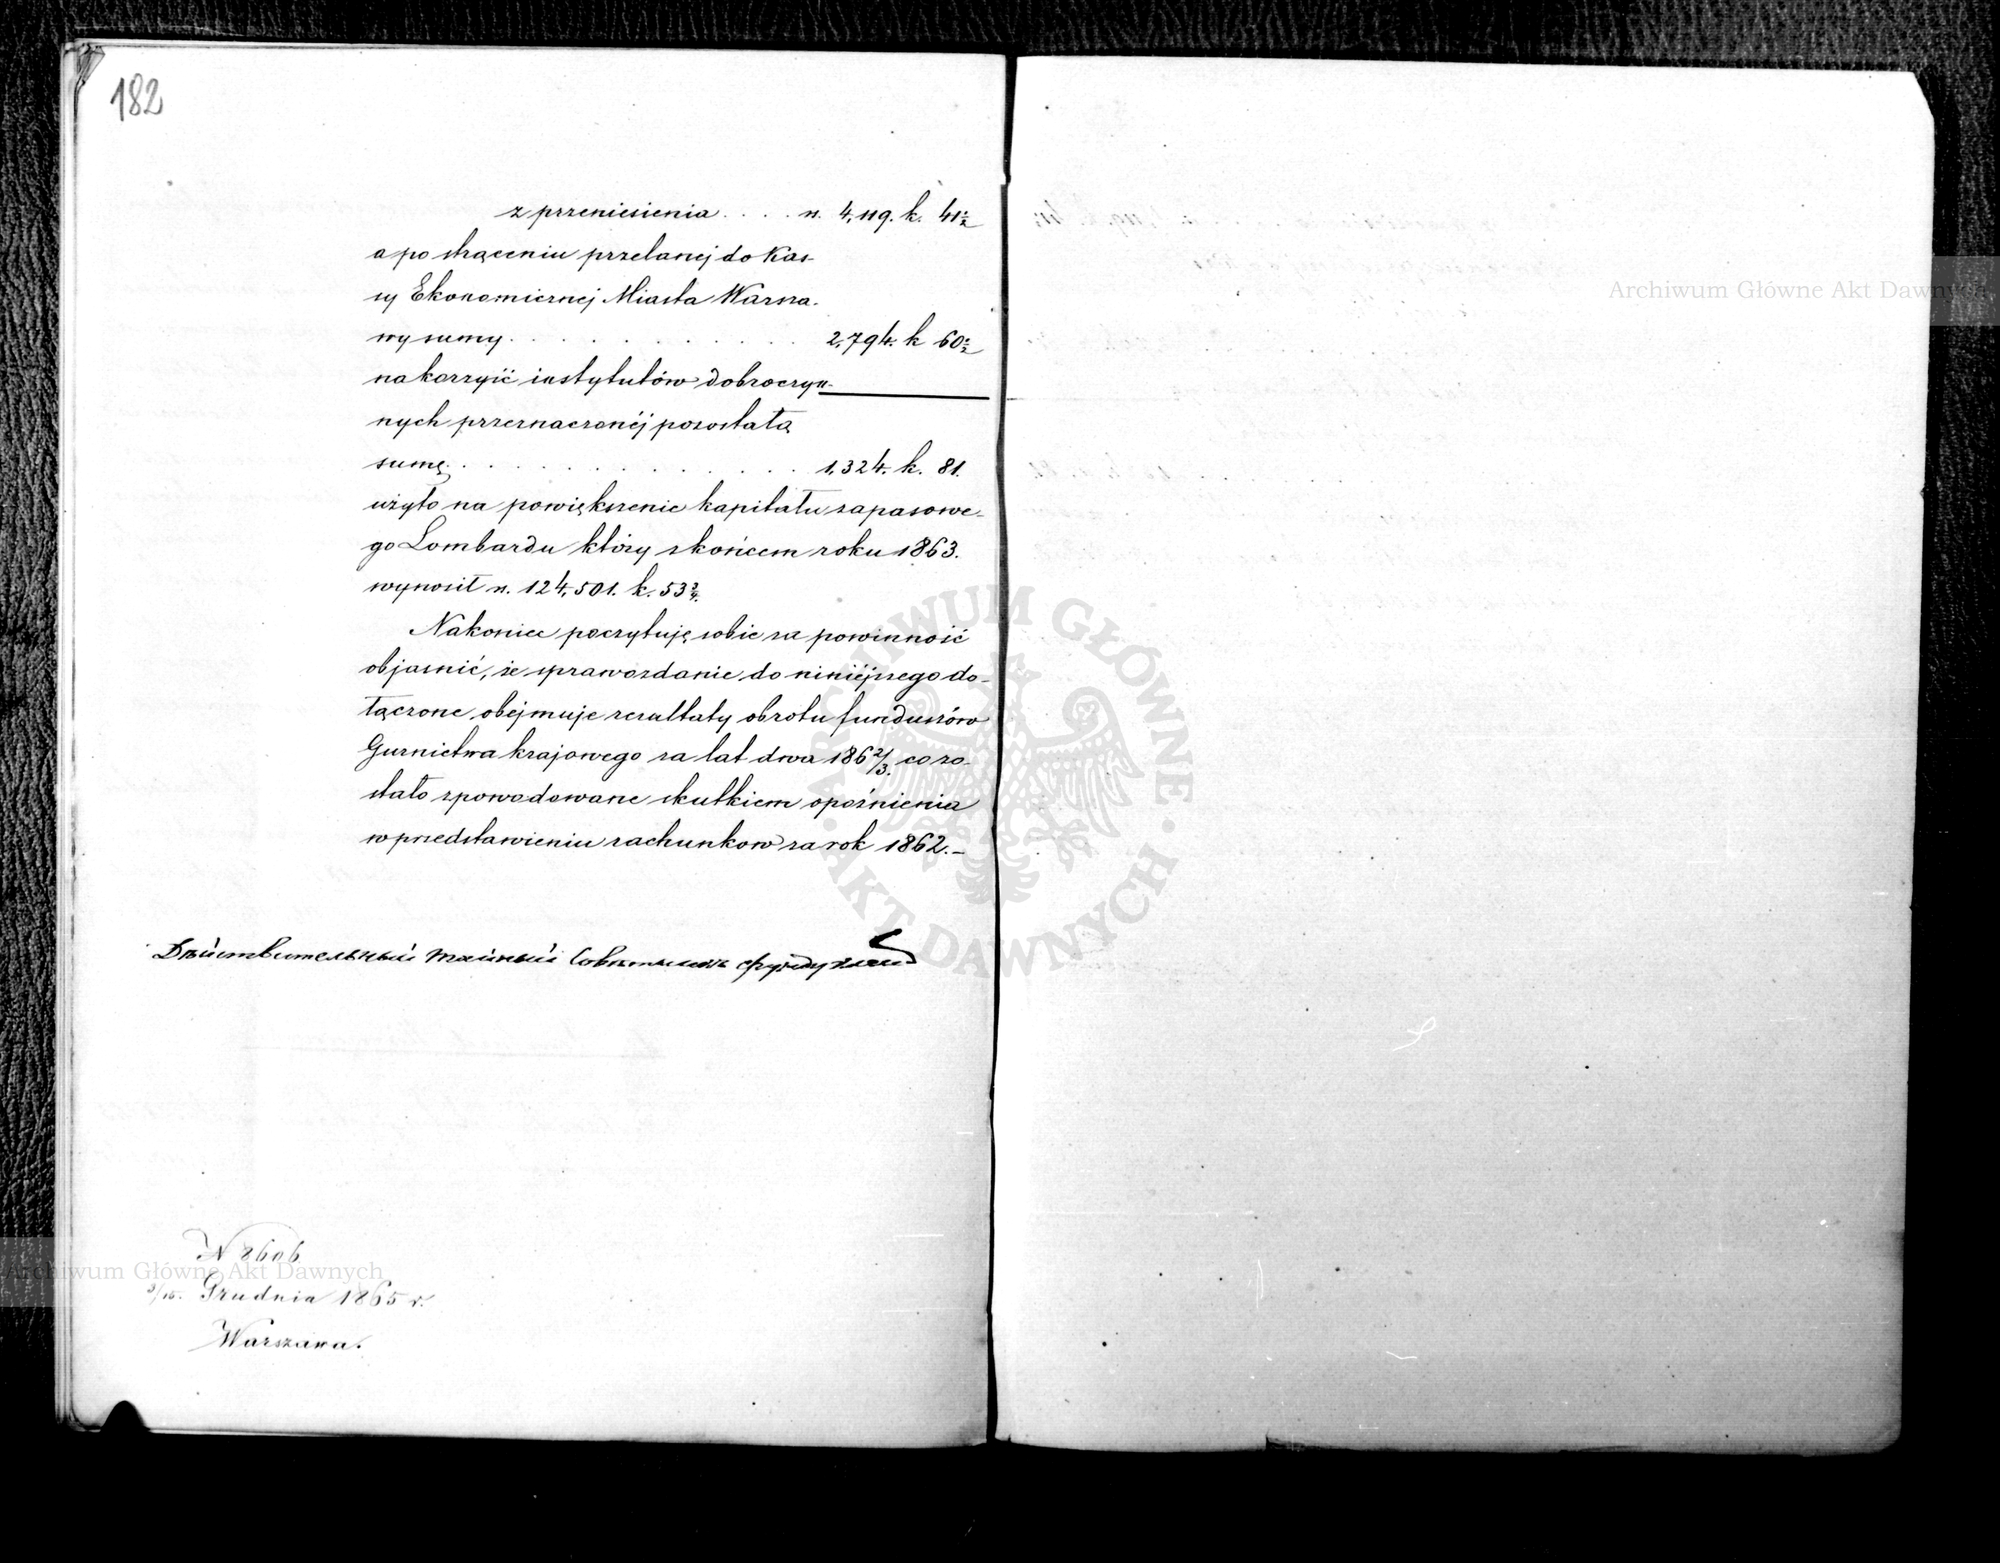 182
z przeniesienia . . . . rs. 4,119. k. 41½
a po strąceniu przelanej do Kas-
sy Ekonomicznej Miasta Warsza-
wy sumy . . . . . . . . . . . 2,794. k 60½
na korzyść instytutów dobroczyn-
nych przeznaczonéj pozostałą
sumę . . . . . . . . . . . . . 1,324. k. 81.
użyto na powiększenie kapitału zapasowe-
go Lombardu który z końcem roku 1863.
wynosił rs. 124,501. k. 53¾.
Nakoniec poczytuję sobie za powinność
objasnić, że sprawozdanie do niniéjszego do-
łączone obejmuje rezultaty obrotu funduszów
Gurnictwa krajowego za lat dwa 1862/3. co zo-
stało spowodowane skutkiem opóźnienia
w przedstawieniu rachunkow za rok 1862.–
Дѣйствительный тайный Совѣтникъ
N 8606
3/15. Grudnia 1865 r.
Warszawa.
Archiwum Główne Akt Dawnych
Archiwum Główne Akt Dawnych
ARCHIWUM GŁÓWNE AKT DAWNYCH